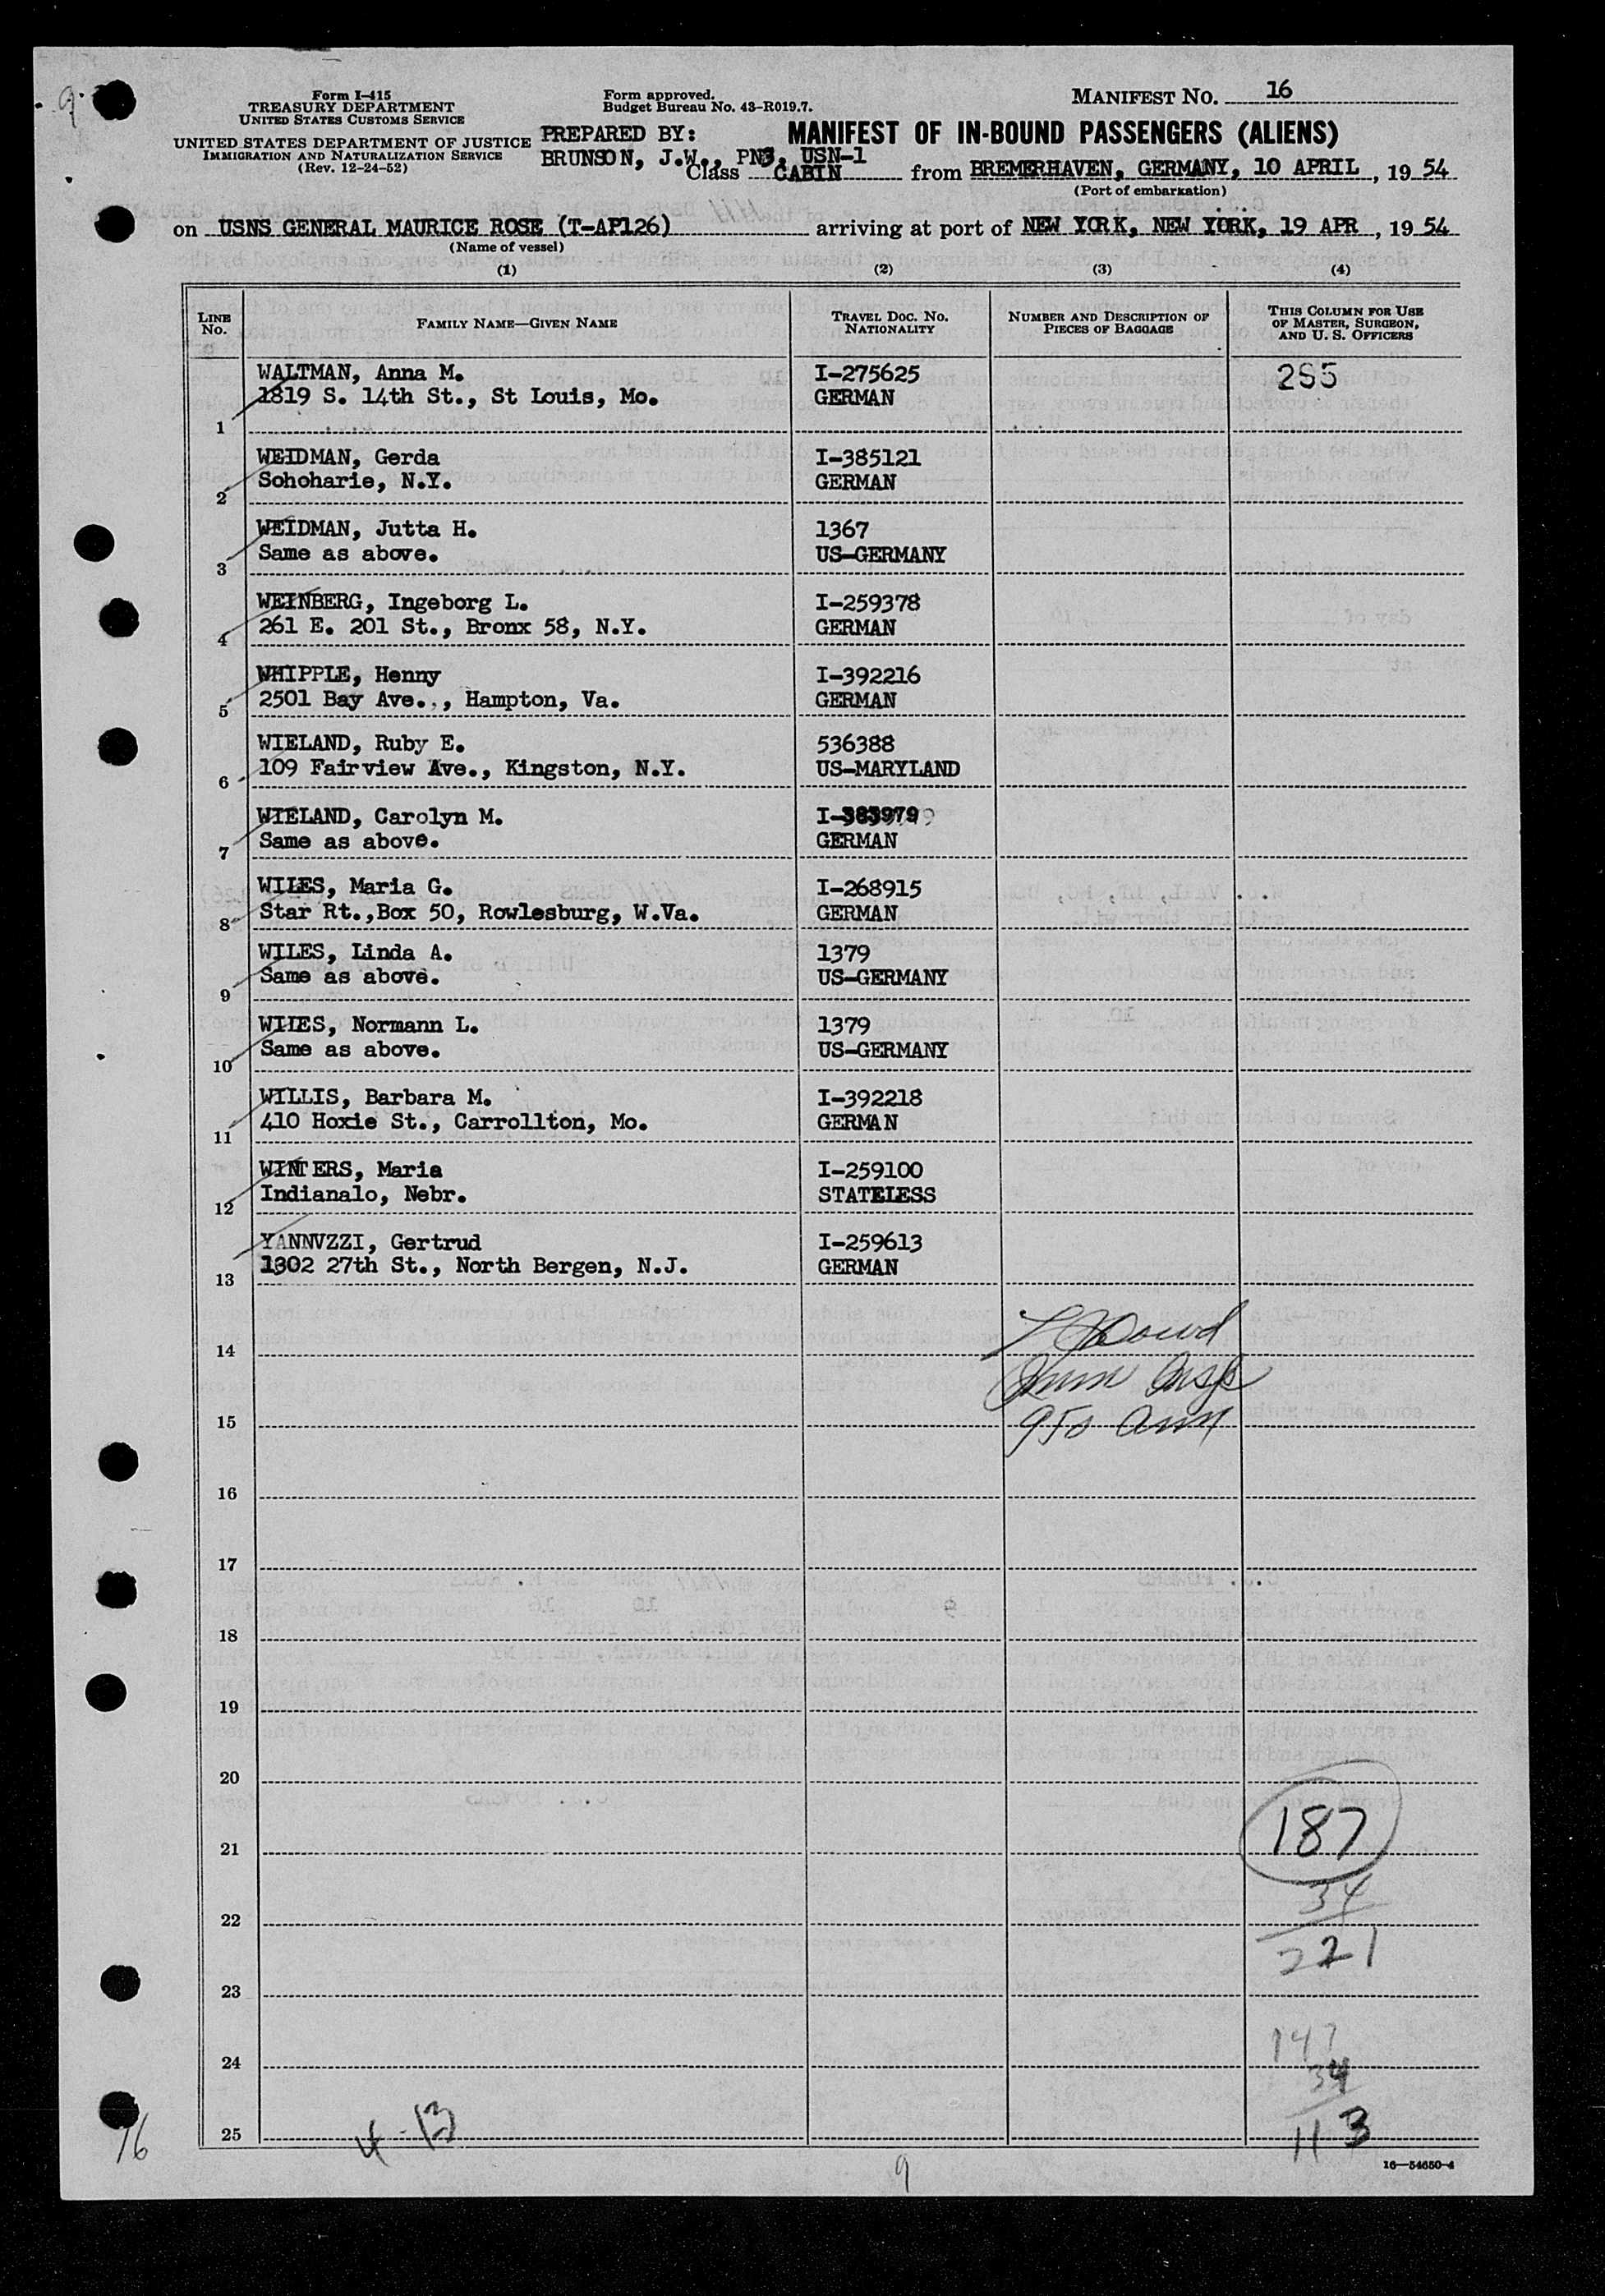 9.
Form I-415
TREASURY DEPARTMENT
UNITED STATES CUSTOMS SERVICE
UNITED STATES DEPARTMENT OF JUSTICE
IMMIGRATION AND NATURALIZATION SERVICE
(Rev. 12-24-52)
Form approved.
Budget Bureau No. 43-R019.7.
MANIFEST NO. 16
PREPARED BY: MANIFEST OF IN-BOUND PASSENGERS (ALIENS)
BRUNSON, J.W., PN3, USN-1
Class CABIN from BREMERHAVEN, GERMANY, 10 APRIL, 19 54
(Port of embarkation)
on USNS GENERAL MAURICE ROSE (T-AP126) arriving at port of NEW YORK, NEW YORK, 19 APR, 19 54
(Name of vessel)
(1) (2) (3) (4)
LINE No. FAMILY NAME—GIVEN NAME TRAVEL DOC. NO. NATIONALITY NUMBER AND DESCRIPTION OF PIECES OF BAGGAGE THIS COLUMN FOR USE OF MASTER, SURGEON, AND U. S. OFFICERS
WALTMAN, Anna M. I-275625 295
1819 S. 14th St., St Louis, Mo. GERMAN
1
WEIDMAN, Gerda I-385121
Sohoharie, N.Y. GERMAN
2
WEIDMAN, Jutta H. 1367
Same as above. US-GERMANY
3
WEINBERG, Ingeborg L. I-259378
261 E. 201 St., Bronx 58, N.Y. GERMAN
4
WHIPPLE, Henny I-392216
2501 Bay Ave.., Hampton, Va. GERMAN
5
WIELAND, Ruby E. 536388
109 Fairview Ave., Kingston, N.Y. US-MARYLAND
6
WIELAND, Carolyn M. I-383979
Same as above. GERMAN
7
WILES, Maria G. I-268915
Star Rt.,Box 50, Rowlesburg, W.Va. GERMAN
8
WILES, Linda A. 1379
Same as above. US-GERMANY
9
WILES, Normann L. 1379
Same as above. US-GERMANY
10
WILLIS, Barbara M. I-392218
410 Hoxie St., Carrollton, Mo. GERMAN
11
WINTERS, Maria I-259100
Indianalo, Nebr. STATELESS
12
YANNVZZI, Gertrud I-259613
1302 27th St., North Bergen, N.J. GERMAN
13
Dowd
14
Imm Insp
15
950 am
16
17
18
19
20
187
21
34
22
221
23
147
24
34
113
25
4-13
16
9
16—54650-4